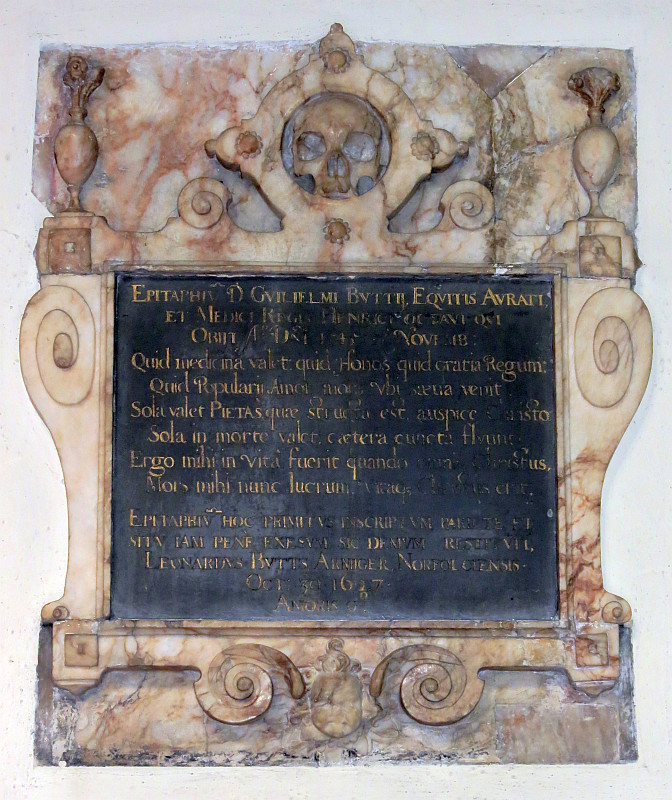 EPITAPHIV̅ D GVILIELMI BVTTIJ, EQVITIS AVRATI
ET MEDICI REGIS HENRICI OCTAVI QVI
OBIIT Aº DNI 1545 NOVEMB:
Quid medicina valet quid Honos quid gratia Regum:
Quid Popularis Amor mors vbi sæua venit
Sola valet PIETAS quæ structa est auspice Christo
Sola in morte valet, cætera cuncta flvunt:
Ergo mihi in vita fuerit quando Christus,
Mors mihi nunc lucrum, vitaq; Christus erit.
EPITAPHIV̅ HOC PRIMITVS INSCRIPTVM PARIETE ET
SITV IAM PENE EXESVM SIC DEMVM RESTITVIT,
LEONARDVS BVTTS ARMIGER NORFOLCIENSIS
OCT. 30 1627
AMORIS Gº